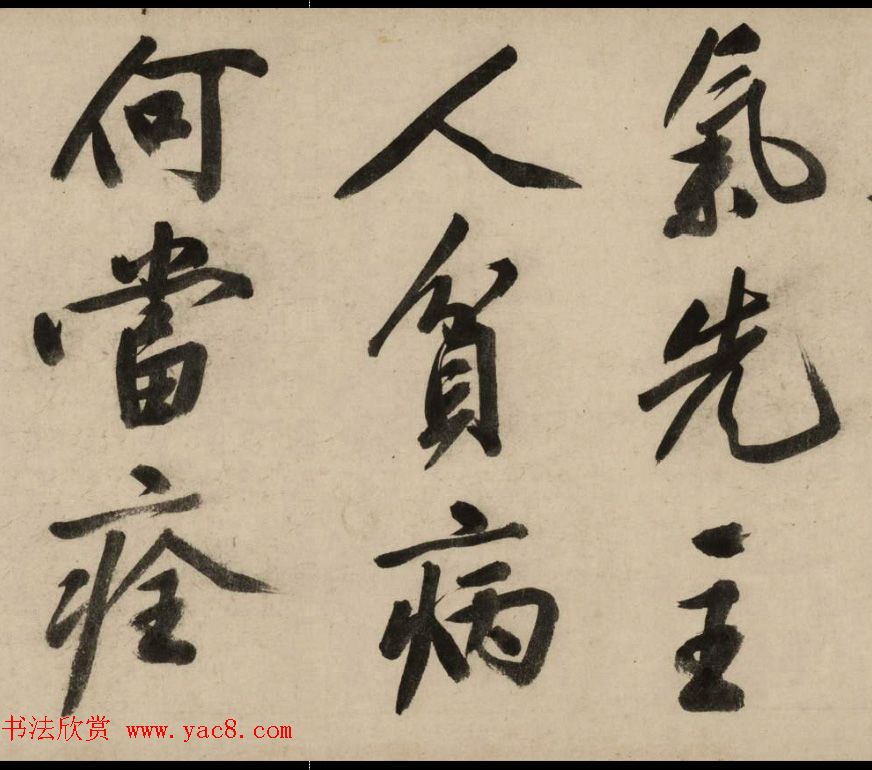 氣先主
人貧病
何當痊
书法欣赏 www.yac8.com